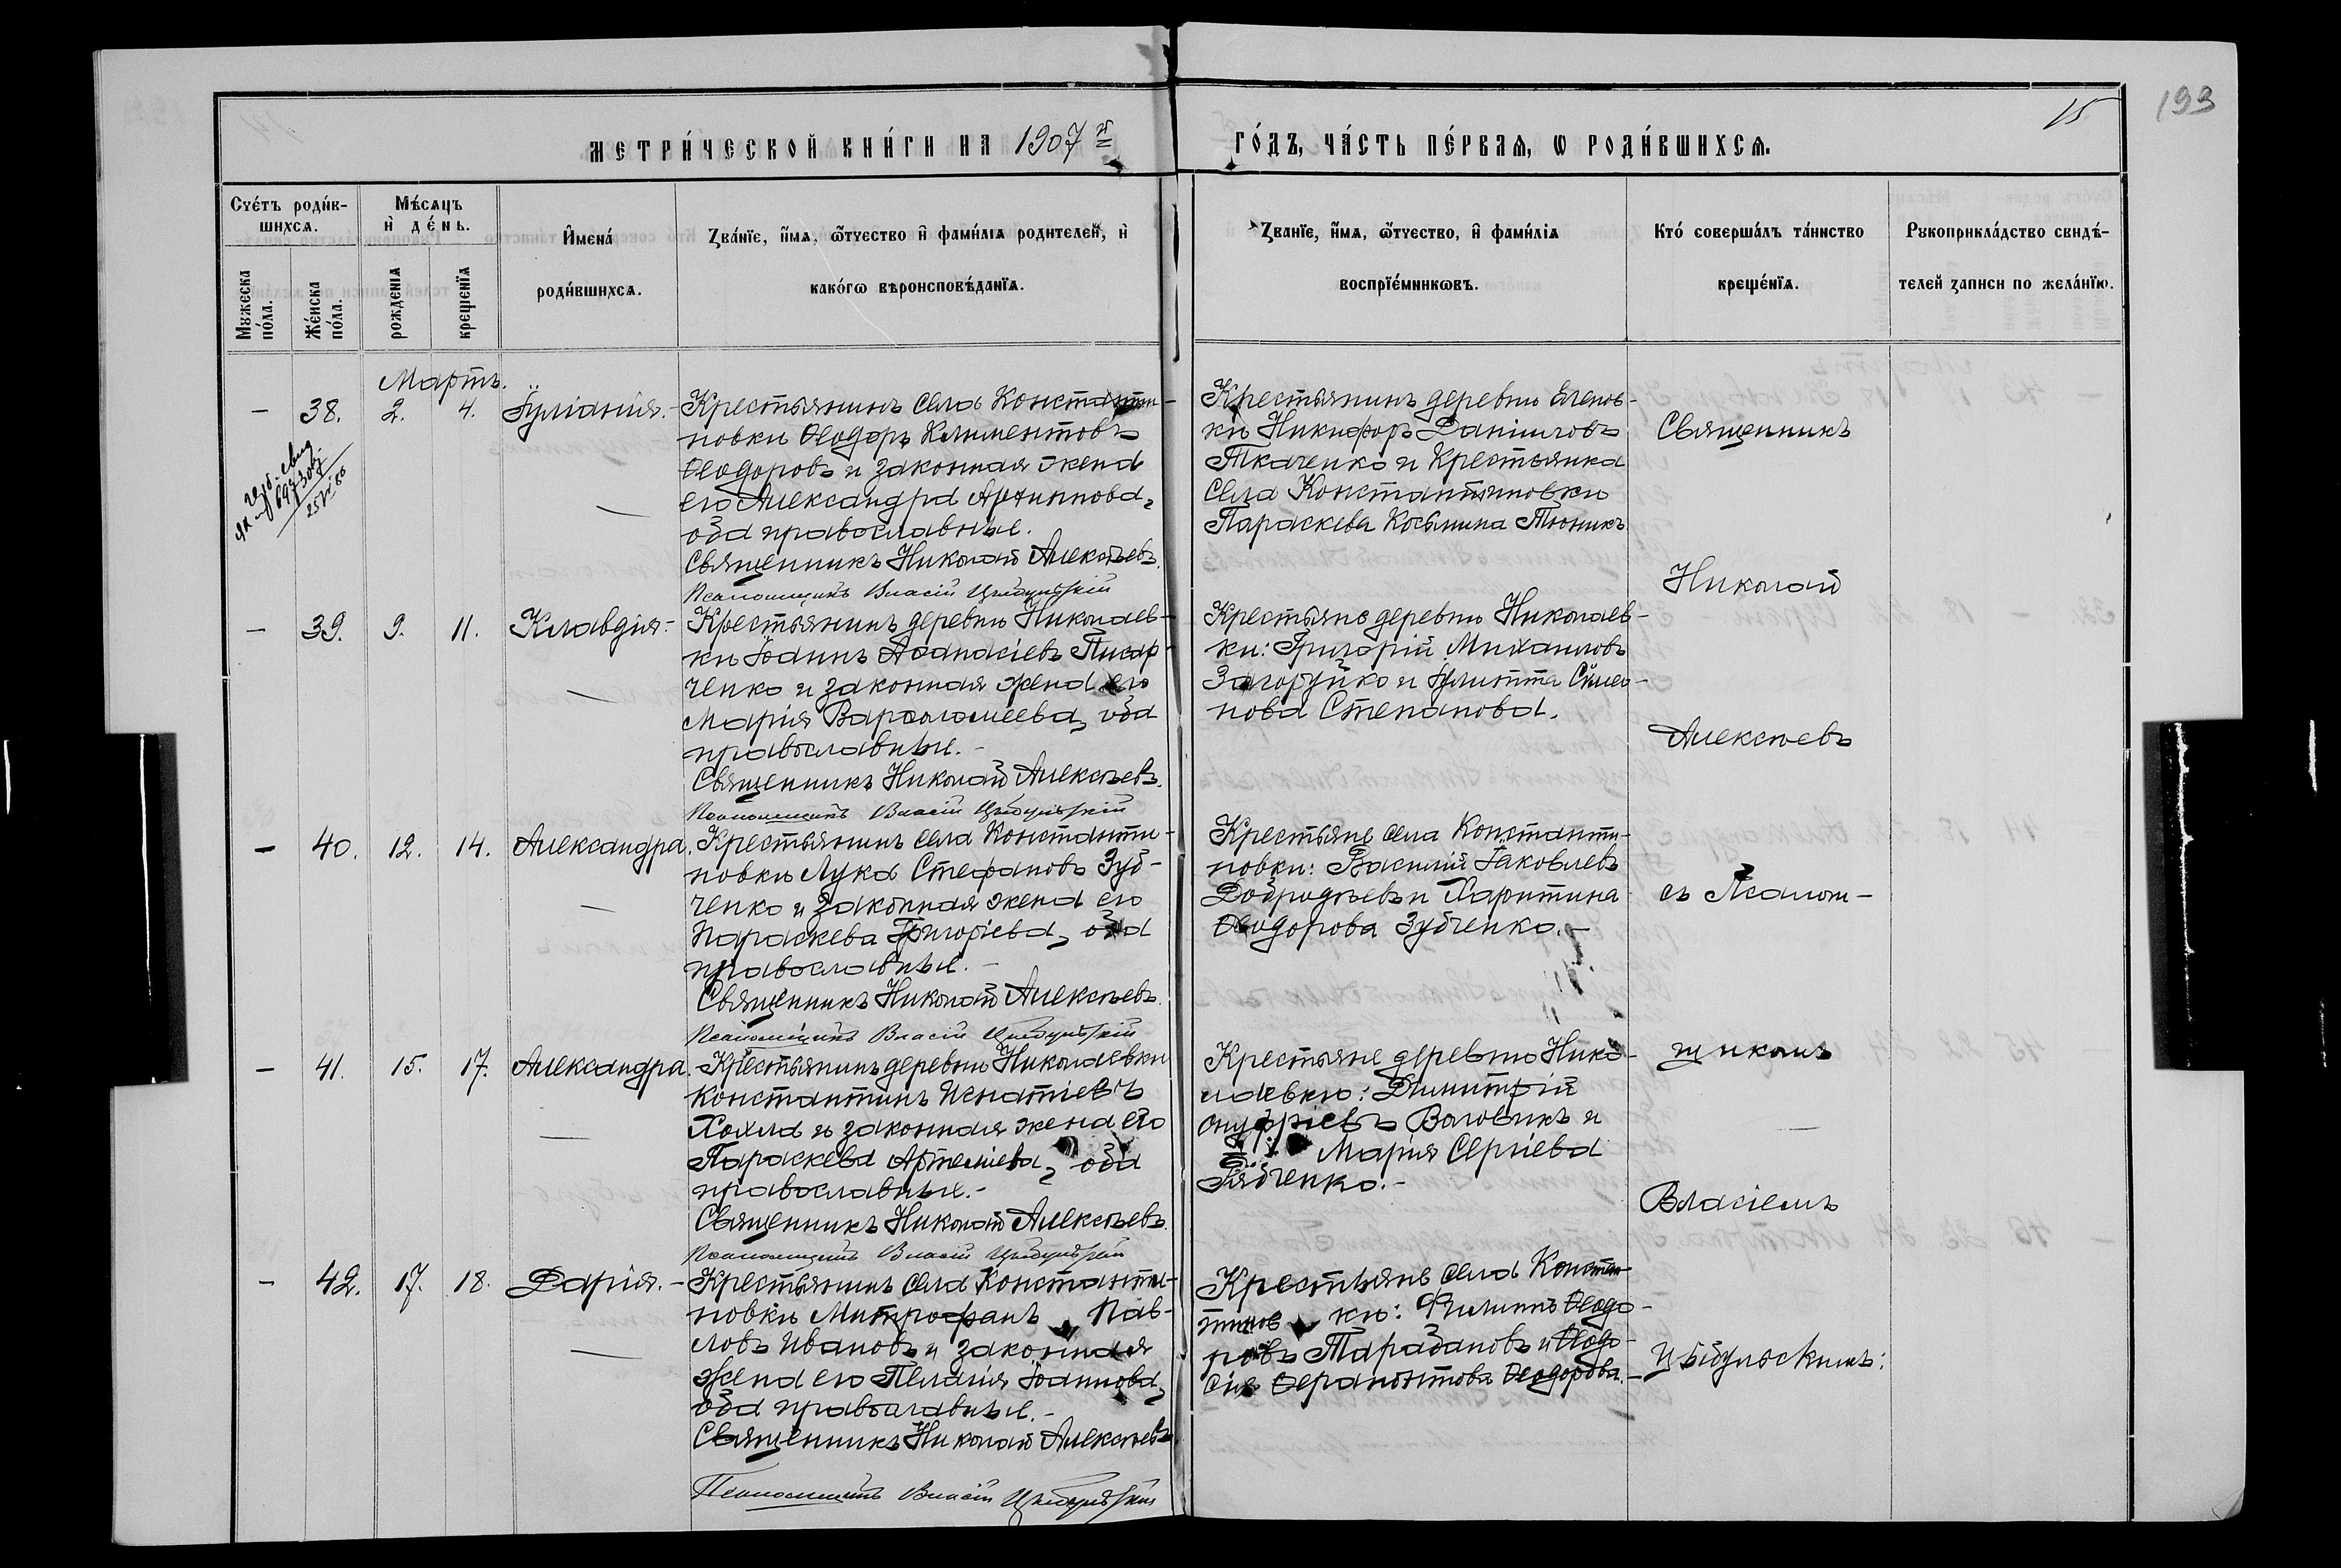 193
15
МЕТРИ́ЧЕСКОЙ КНИ́ГИ НА 1907й
ГО́ДЪ, ЧА́СТЬ ПЕ́РВАѦ, Ѡ РОДИ́ВШИХСѦ.
Счéтъ роди́в-
шихсѧ.
Мужеска
по́ла.
Же́нска
по́ла.
Мѣ́сѧцъ
и҆ де́нь.
рожденїѧ
крещенїѧ
И҆мена́
роди́вшихсѧ.
Зва́нїе, и҆́мѧ, ѻ҆́тчество и҆ фами́лїѧ родителей, и҆
како́гѡ вѣроисповѣ́данїѧ.
Званїе, и҆́мѧ, ѻ҆́тчество, и҆ фами́лїѧ
воспрїе́мникѡвъ.
Кто́ соверша́лъ та́инство
креще́нїѧ.
Рꙋкоприкла́дство свидѣ́-
телей записи по жела́нїю.
Мартъ.
— 38. 2. 4. Іуліанія. —
Крестьянинъ села Константи-
новки Ѳеодоръ Климентовъ
Ѳеодоровъ и законная жена
его Александра Архиппова,
оба православные.
Священникъ Николай Алексѣевъ.
Псаломщикъ Власій Цыбульскій
Крестьянинъ деревни Еленов-
ки Никифоръ Даніиловъ
Ткаченко и Крестьянка
села Константиновки
Параскева Косьмина Тюникъ
— 39. 9. 11. Клавдія. —
Крестьянинъ деревни Николаев-
ки Іоаннъ Аѳанасіевъ Писар-
ченко и законная жена его
Марія Варѳоломеева, оба
православные. —
Священникъ Николай Алексѣевъ.
Псаломщикъ Власій Цыбульскій
Крестьяне деревни Николаев-
ки: Григорій Михаиловъ
Загоруйко и Іулитта Симео-
нова Степанова.
— 40. 12. 14. Александра.
Крестьянинъ села Константи-
новки Лука Стефановъ Зуб-
ченко и законная жена его
Параскева Григоріева, оба
православные. —
Священникъ Николай Алексѣевъ.
Псаломщикъ Власій Цыбульскій
Крестьяне села Константи-
новки: Василій Іаковлевъ
Добродѣевъ и Харитина
Ѳеодорова Зубченко. —
— 41. 15. 17. Александра.
Крестьянинъ деревни Николаевки
Константинъ Игнатіевъ
Хохла и законная жена его
Параскева Артеміева, оба
православные. —
Священникъ Николай Алексѣевъ.
Псаломщикъ Власій Цыбульскій
Крестьяне деревни Нико-
лаевки: Димитрій
Онуфріевъ Воловикъ и
Марія Сергіева
Рябченко. —
— 42. 17. 18. Дарія. —
Крестьянинъ села Константи-
новки Митрофанъ Пав-
ловъ Ивановъ и законная
жена его Пелагія Іоаннова,
оба православные. —
Священникъ Николай Алексѣевъ
Псаломщикъ Власій Цыбульскій
Крестьяне села Констан-
тинов ки: Филиппъ Ѳеодо-
ровъ Тарабановъ и Ѳеодо-
сія Ѳерапонтова Ѳеодорова. —
Священникъ
Николай
Алексѣевъ
съ Псалом-
щикомъ
Власіемъ
Цыбульскимъ: